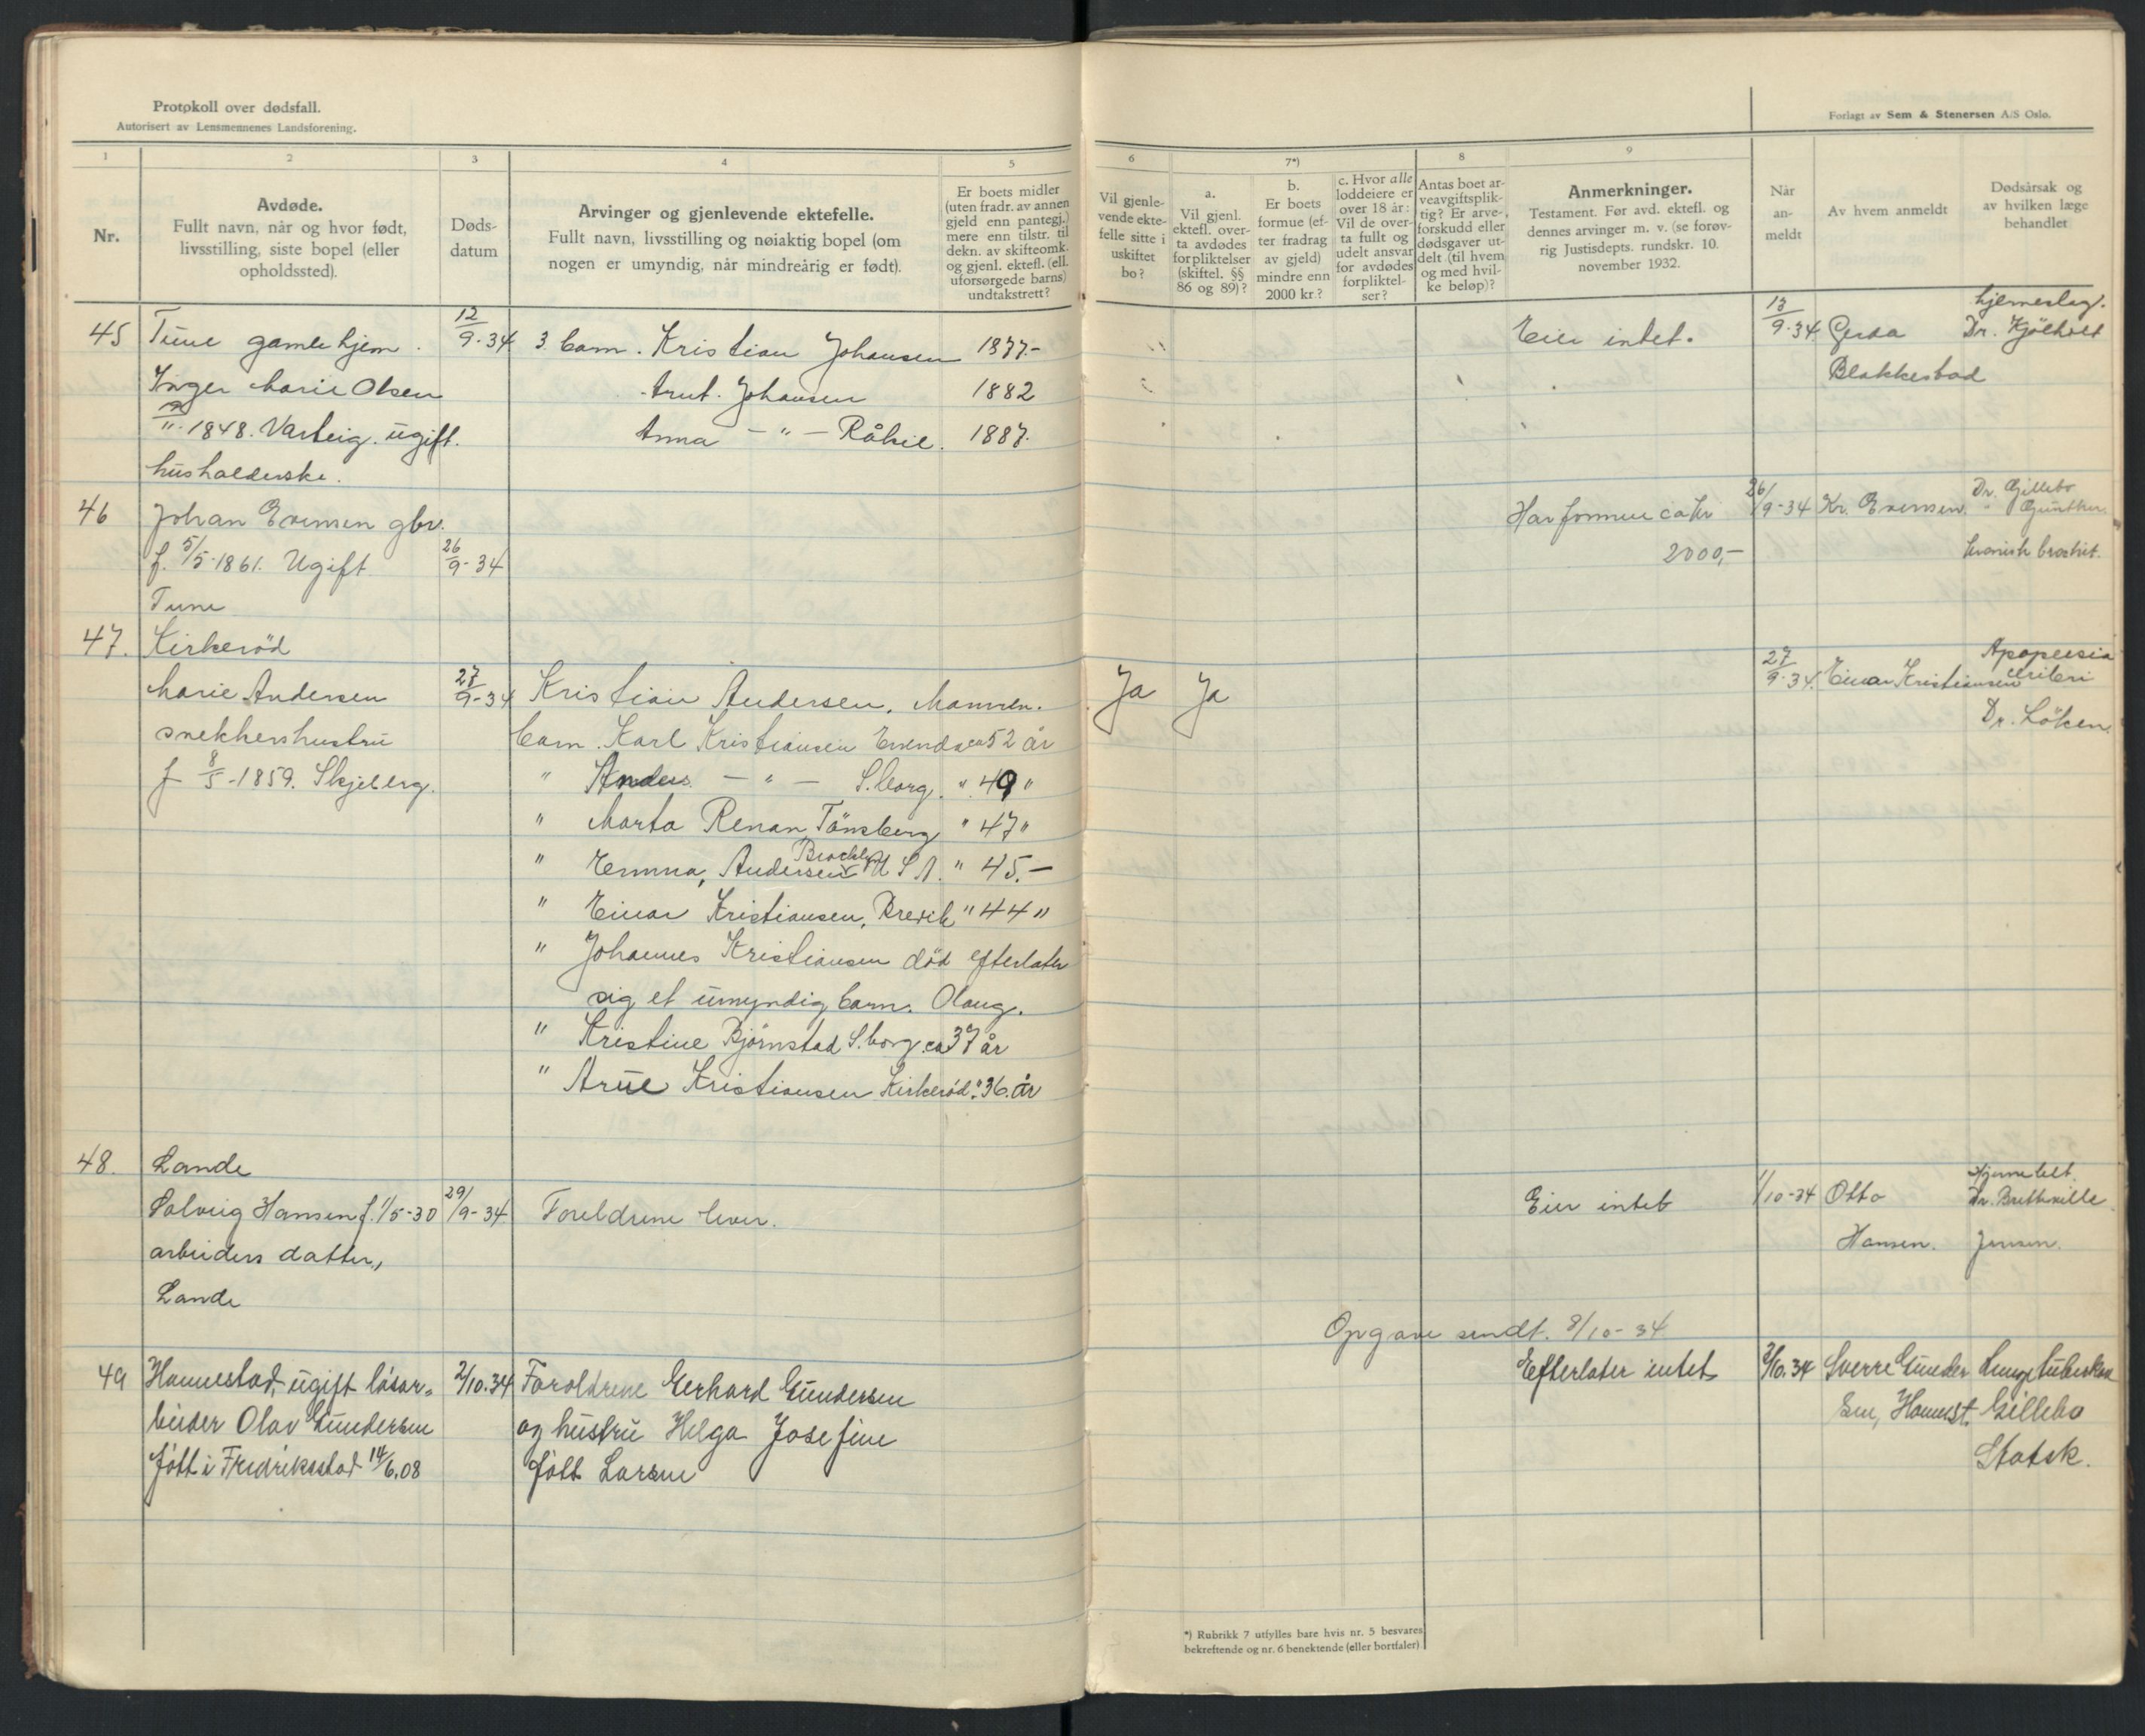 Protokoll over dødsfall.
Autorisert av Lensmennenes Landsforening.
Forlagt av Sem & Stenersen A/S Oslo.
1
2
3
4
5
6
7*)
8
9
Nr.
Avdøde.
Fullt navn, når og hvor født,
livsstilling, siste bopel (eller
opholdssted).
Døds-
datum
Arvinger og gjenlevende ektefelle.
Fullt navn, livsstilling og nøiaktig bopel (om
nogen er umyndig, når mindreårig er født).
Er boets midler
(uten fradr. av annen
gjeld enn pantegj.)
mere enn tilstr. til
dekn. av skifteomk.
og gjenl. ektefl. (ell.
uforsørgede barns)
undtakstrett?
Vil gjenle-
vende ekte-
felle sitte i
uskiftet
bo?
a.
Vil gjenl.
ektefl. over-
ta avdødes
forpliktelser
(skiftel. §§
86 og 89)?
b.
Er boets
formue (ef-
ter fradrag
av gjeld)
mindre enn
2000 kr.?
c. Hvor alle
loddeiere er
over 18 år:
Vil de over-
ta fullt og
udelt ansvar
for avdødes
forpliktel-
ser?
Antas boet ar-
veavgiftsplik-
tig? Er arve-
forskudd eller
dødsgaver ut-
delt (til hvem
og med hvil-
ke beløp)?
Anmerkninger.
Testament. Før avd. ektefl. og
dennes arvinger m. v. (se forøv-
rig Justisdepts. rundskr. 10.
november 1932.
Når
an-
meldt
Av hvem anmeldt
Dødsårsak og
av hvilken læge
behandlet
45 Tune gamle hjem. 12/9-34 3 barn. Kristian Johansen 1877.- Eier intet. 13/9-34 Gerda hjerneslag. Dr. Kjölholt
Inger Marie Olsen Johansen 1882 Blakkestad
1848. Varteig. ugift. Anna - " - Råkil. 1887.
husholderske.
46 Johan Evensen gbr. Har formue ca kr 26/9-34 Kr. Evensen. Dr. Gillebo
" Günther.
f. 5/5-1861. Ugift 26/9-34 2000,- bronkit.
Tune
47. Kirkeröd
Marie Andersen 27/9-34 Kristian Andersen, Mannen. Ja Ja 27/9-34. Einar Kristiansen
snekkerhustru barn. Karl Kristiansen ca 52 år Dr. Löken.
f 8/5-1859. Skjeberg. " Anders - " - S.borg. " 49 "
" Marta Renan, Tönsberg " 47 "
" Emma, Andersen U S A. " 45.-
" Einar Kristiansen, Brevik " 44 "
" Johannes Kristiansen död efterlater
sig et umyndig barn. Olaug.
" Kristine Björnstad S.borg. ca 37 år
" Arne Kristiansen Kirkeröd. " 36. år
48. Lande
Solveig Hansen f. 1/5-30 29/9-34 Foreldrene lever. Eier intet 1/10-34 Otto
arbeiders datter, Hansen. Jensen.
Lande
Opgave sendt. 8/10-34
49 Hannestad, ugift lösar- 2/10.34 Foreldrene Gerhard Gundersen Efterlater intet 3/10.34 Sverre Gunder- Lungetuberkulose
beider Olav Gundersen og hustru Helga Josefine sen, Hannest. Gillebo
född i Fredrikstad 14/6.08 född Larsen Statsk.
*) Rubrikk 7 utfylles bare hvis nr. 5 besvares
bekreftende og nr. 6 benektende (eller bortfaler)